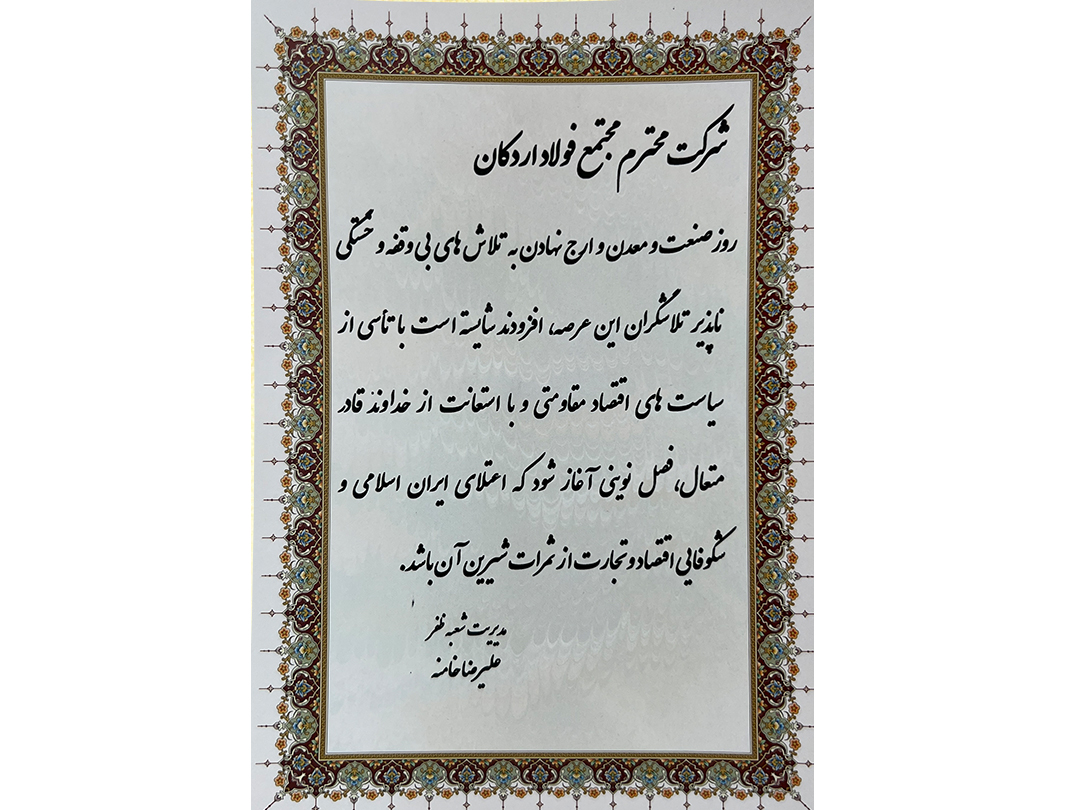 شرکت محترم مجتمع فولاد اردکان
روز صنعت و معدن و ارج نهادن به تلاش های بی وقفه و خستگی
ناپذیر تلاشگران این عرصه، افزودند شایسته است با تأسی از
سیاست های اقتصاد مقاومتی و با استعانت از خداوند قادر
متعال، فصل نوینی آغاز شود که اعتلای ایران اسلامی و
شکوفایی اقتصاد و تجارت از ثمرات شیرین آن باشد.
مدیریت شعبه ظفر
علیرضا خامنه